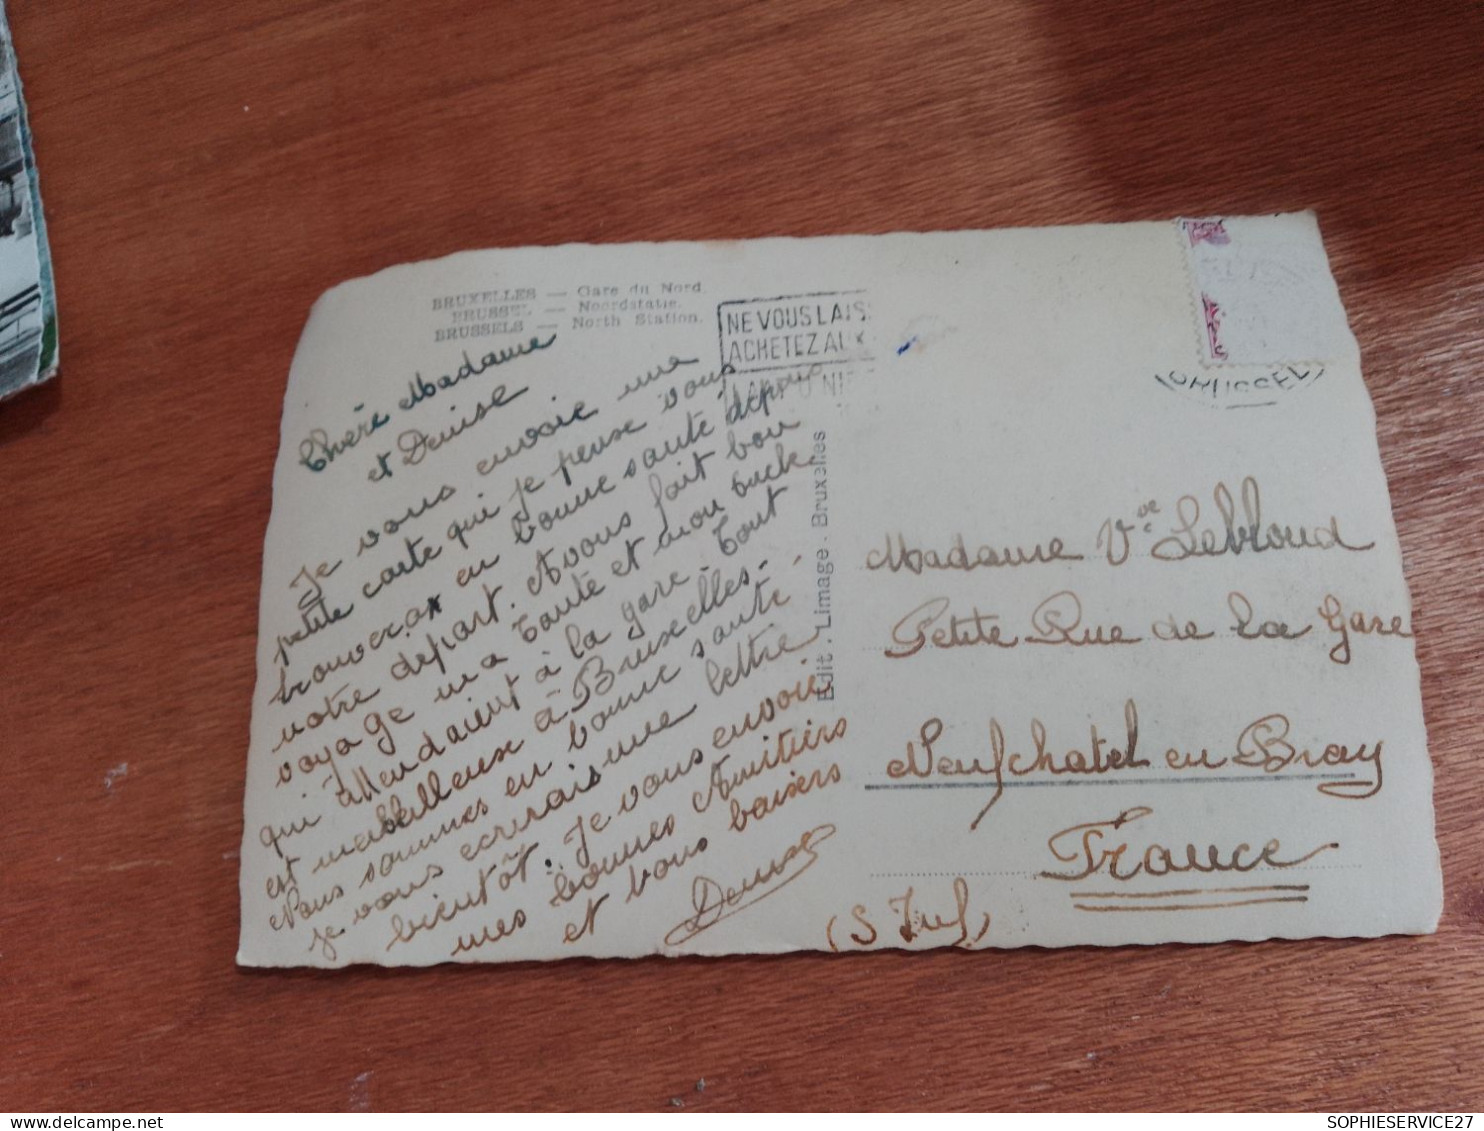 BRUXELLES — Gare du Nord.
BRUSSEL — Noordstatie.
BRUSSELS — North Station.
NE VOUS LAIS
ACHETEZ AUX
Chère Madame
et Denise
Je vous envoie une
petite carte qui je pense vous
trouverax en bonne santé depuis
notre départ. Nous fait bon
voyage ma Tante et mon
qui attendaient à la gare. Tout
est merveilleuse à Bruxelles.
Nous sommes en bonne santé,
je vous écrirais une lettre
bientôt. Je vous envoie
mes bonnes Amitiers
et bons baisers
Edit. Limage - Bruxelles
Madame Vve Leblond
Petite Rue de La Gare
Neufchatel en Bray
France
(S Inf)
SOPHIESERVICE27